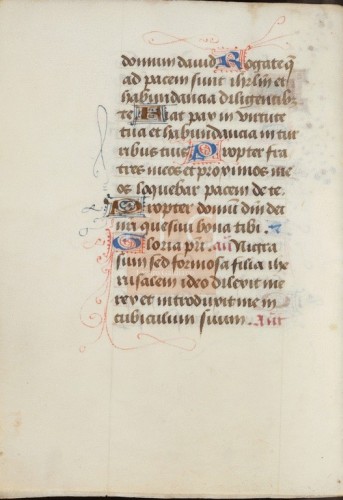 domum david Rogate q̄
ad pacem sunt ihrlm et
habundancia diligentib;
te Fiat pax in virtute
tua et habundancia in tur
ribus tuis Propter fra
tres meos et proximos me
os loquebar pacem de te.
Propter domū dm̄i dei
nri quesivi bona tibi.
Gloria pri. añ Nigra
sum sed formosa filia ihe
rusalem ideo dilexit me
rex et introduxit me in
cubiculum suum. Ant